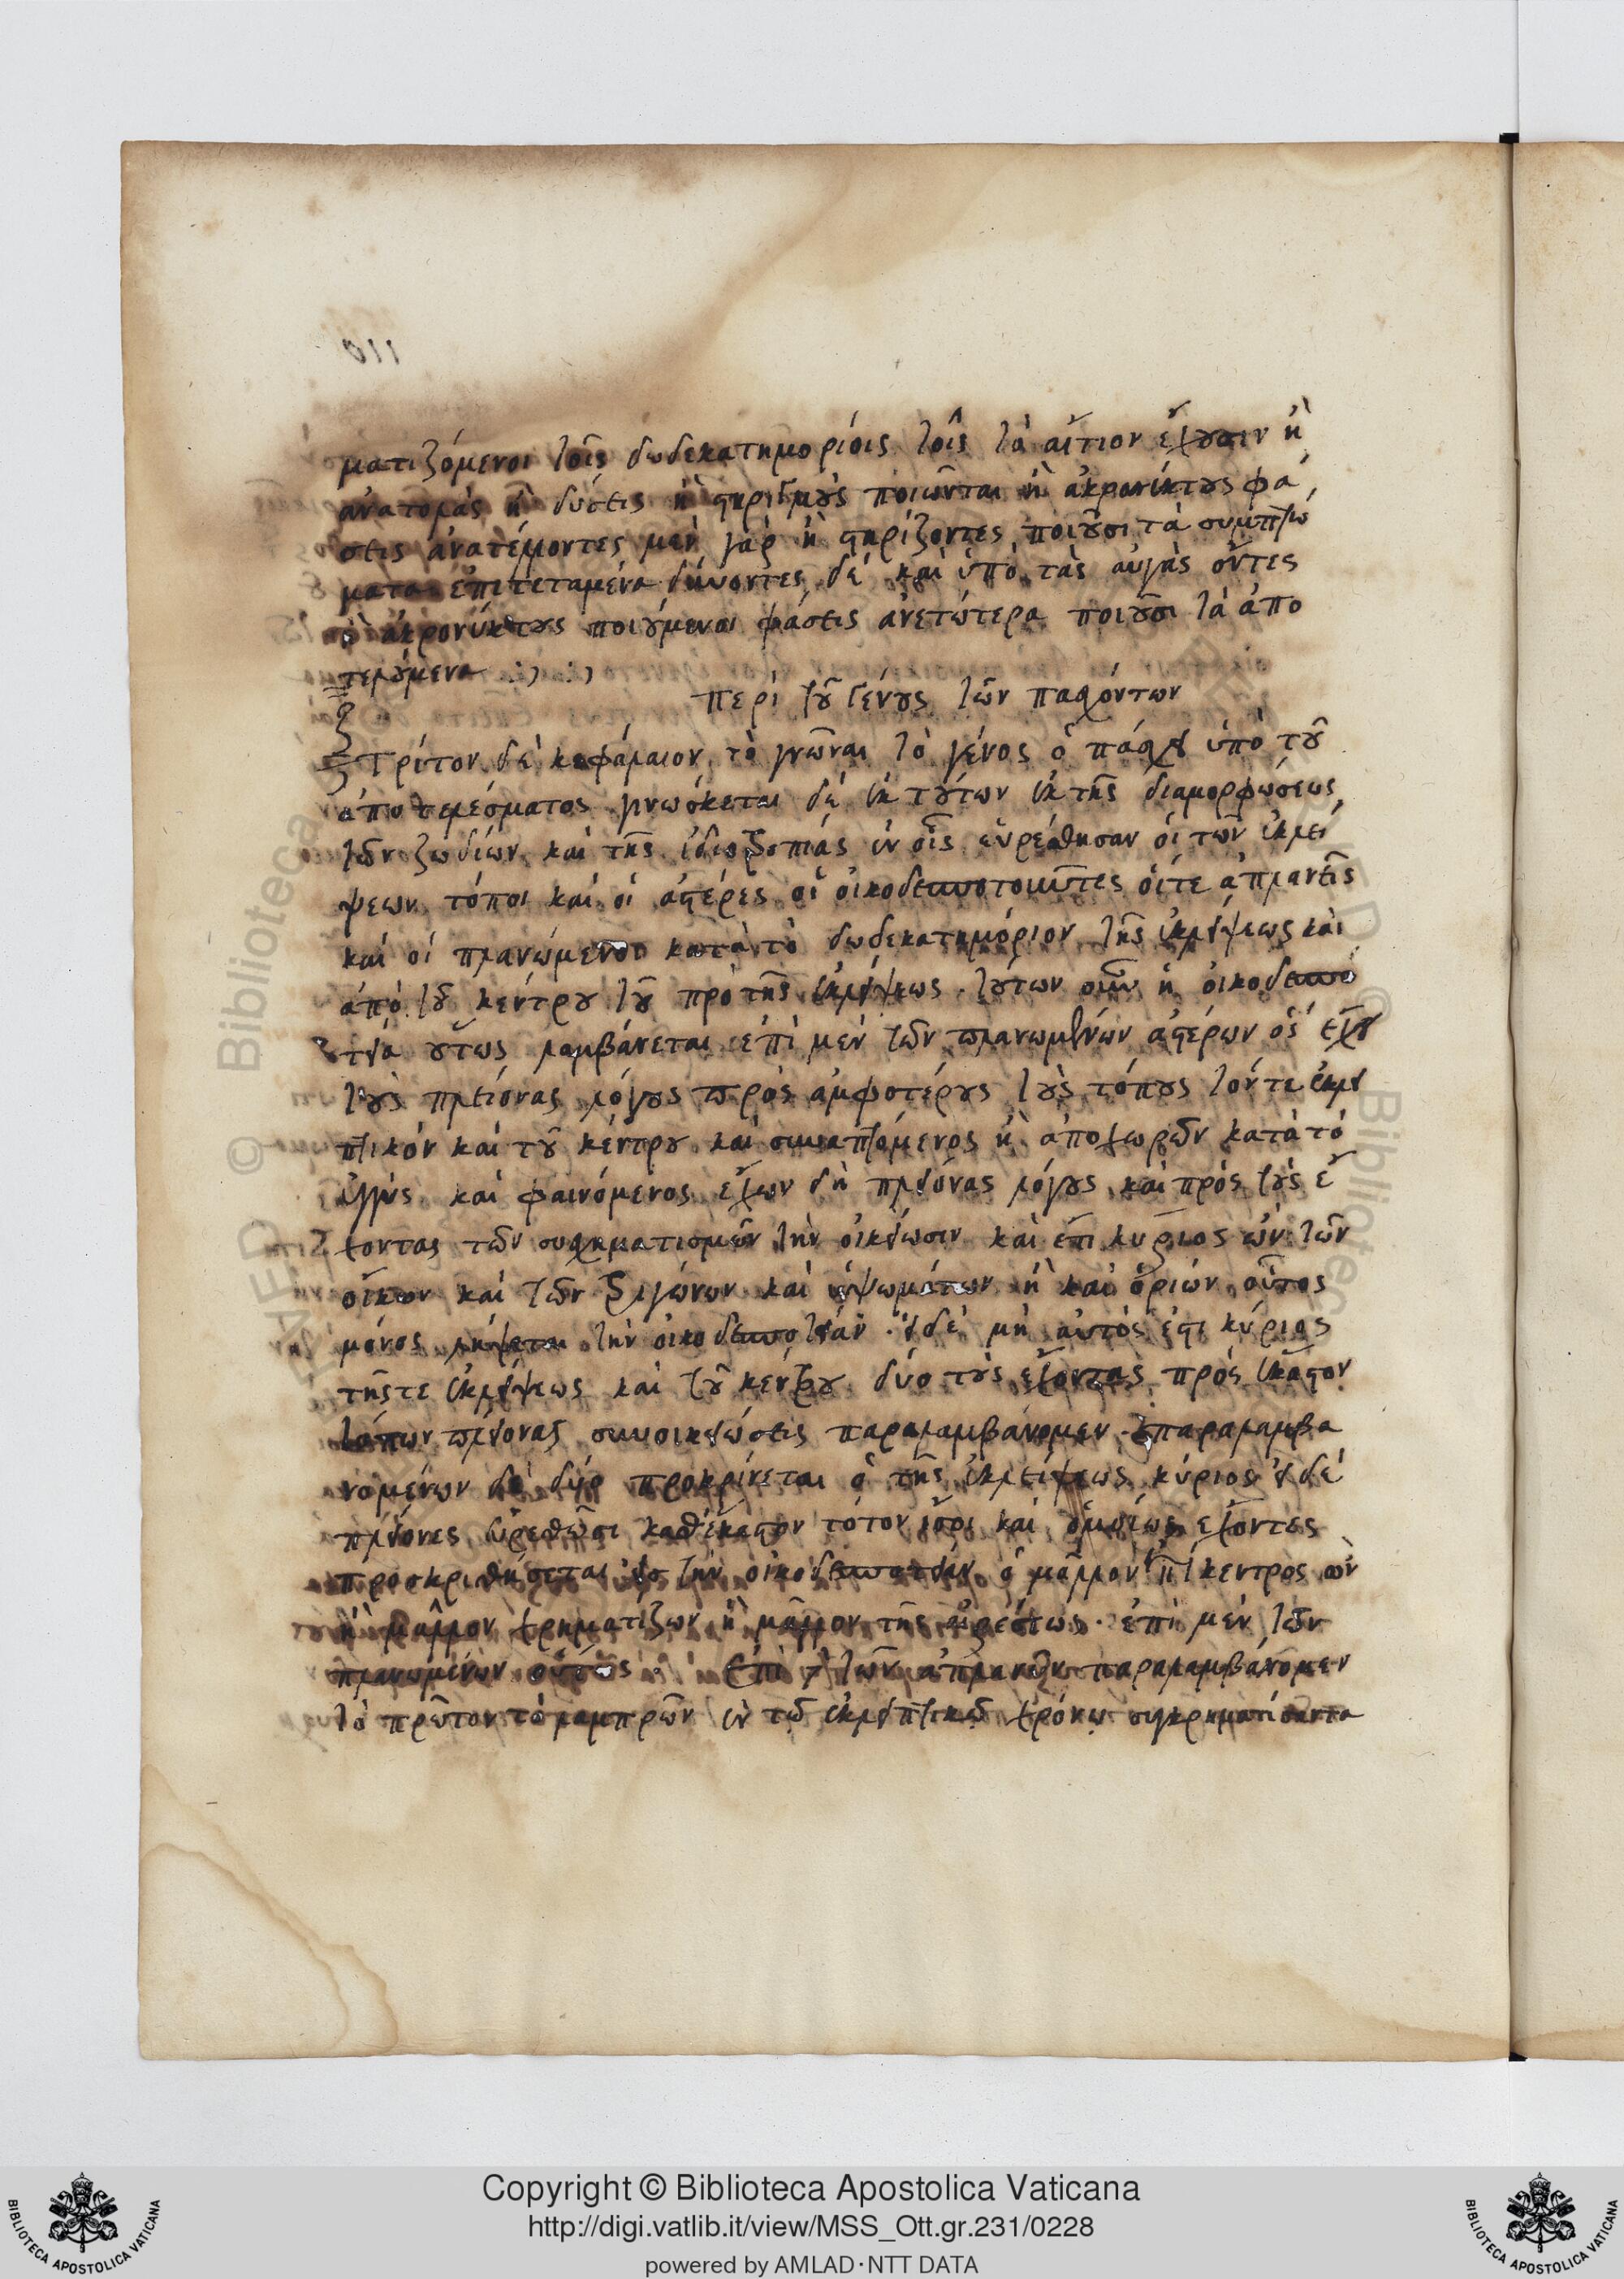 110
ματιζόμενοι τοῖς δωδεκατημορίοις τοῖς τὸ αἴτιον ἔχουσιν ἢ
ἀνατολὰς ἢ δύσεις ἢ στηριγμοὺς ποιῶνται ἢ ἀκρονύκτους φά
σεις ἀνατέλλοντες μὲν γὰρ ἢ στηρίζοντες ποιοῦσι τὰ συμπτώ
ματα ἐπιτεταμένα δύνοντες δὲ καὶ ὑπὸ τὰς αὐγὰς ὄντες
ἢ ἀκρονύκτους ποιούμενοι φάσεις ἀνετώτερα ποιοῦσι τὰ ἀπο
τελούμενα
περὶ τοῦ γένους τῶν πασχόντων
Τρίτον δὲ κεφάλαιον τὸ γνῶναι τὸ γένος ὃ πάσχει ὑπὸ τοῦ
ἀποτελέσματος γινώσκεται δὲ ἐκ τούτων ἐκ τῆς διαμορφώσεως
τῶν ζωδίων καὶ τῆς ἰδιοτροπίας ἐν οἷς εὑρέθησαν οἱ τῶν ἐκλεί
ψεων τόποι καὶ οἱ ἀστέρες οἱ οἰκοδεσποτοῦντες οἵτε ἀπλανεῖς
καὶ οἱ πλανώμενοι κατὰ τὸ δωδεκατημόριον τῆς ἐκλείψεως καὶ
ἀπὸ τοῦ κέντρου τοῦ πρὸ τῆς ἐκλείψεως . τούτων οὖν ἡ οἰκοδεσπο
τεία οὕτως λαμβάνεται ἐπὶ μὲν τῶν πλανωμένων ἀστέρων ὃς ἔχει
τοὺς πλείονας λόγους πρὸς ἀμφοτέρους τοὺς τόπους τόντε ἐκλει
πτικόν καὶ τοῦ κέντρου καὶ συναπτόμενος ἢ ἀποχωρῶν κατὰ τὸ
ἐγγὺς καὶ φαινόμενος ἔχων δὴ πλείονας λόγους καὶ πρὸς τοὺς ἔ
χοντας τῶν συσχηματισμῶν τὴν οἰκείωσιν καὶ ἔτι κύριος ὢν τῶν
οἴκων καὶ τῶν τριγώνων καὶ ὑψωμάτων ἢ καὶ ὁρίων οὗτος
μόνος λήψεται τὴν οἰκοδεσποτείαν . εἰ δὲ μὴ αὐτὸς ἐστι κύριος
τῆς τε ἐκλείψεως καὶ τοῦ κέντρου δύο τοὺς ἔχοντας πρὸς ἕκαστον
τόπων πλείονας συνοικειώσεις παραλαμβάνομεν . παραλαμβα
νομένων δὲ δύο προκρίνεται ὁ τῆς ἐκλείψεως κύριος εἰ δὲ
πλείονες εὑρεθῶσι καθ' ἕκαστον τόπον ἴσοι καὶ ὁμοίως ἔχοντες
προσκριθήσεται εἰς τὴν οἰκοδεσποτείαν ὁ μᾶλλον ἐπίκεντρος ὢν
ἢ μᾶλλον χρηματίζων ἢ μᾶλλον τῆς αἱρέσεως . ἐπὶ μὲν τῶν
πλανωμένων οὕτως . Ἐπὶ δὲ τῶν ἀπλανῶν παραλαμβάνομεν
τὸ πρῶτον τὸ λαμπρῶν ἐν τῷ ἐκλειπτικῷ χρόνῳ συγχρηματίσαντα
Copyright © Biblioteca Apostolica Vaticana
http://digi.vatlib.it/view/MSS_Ott.gr.231/0228
powered by AMLAD·NTT DATA